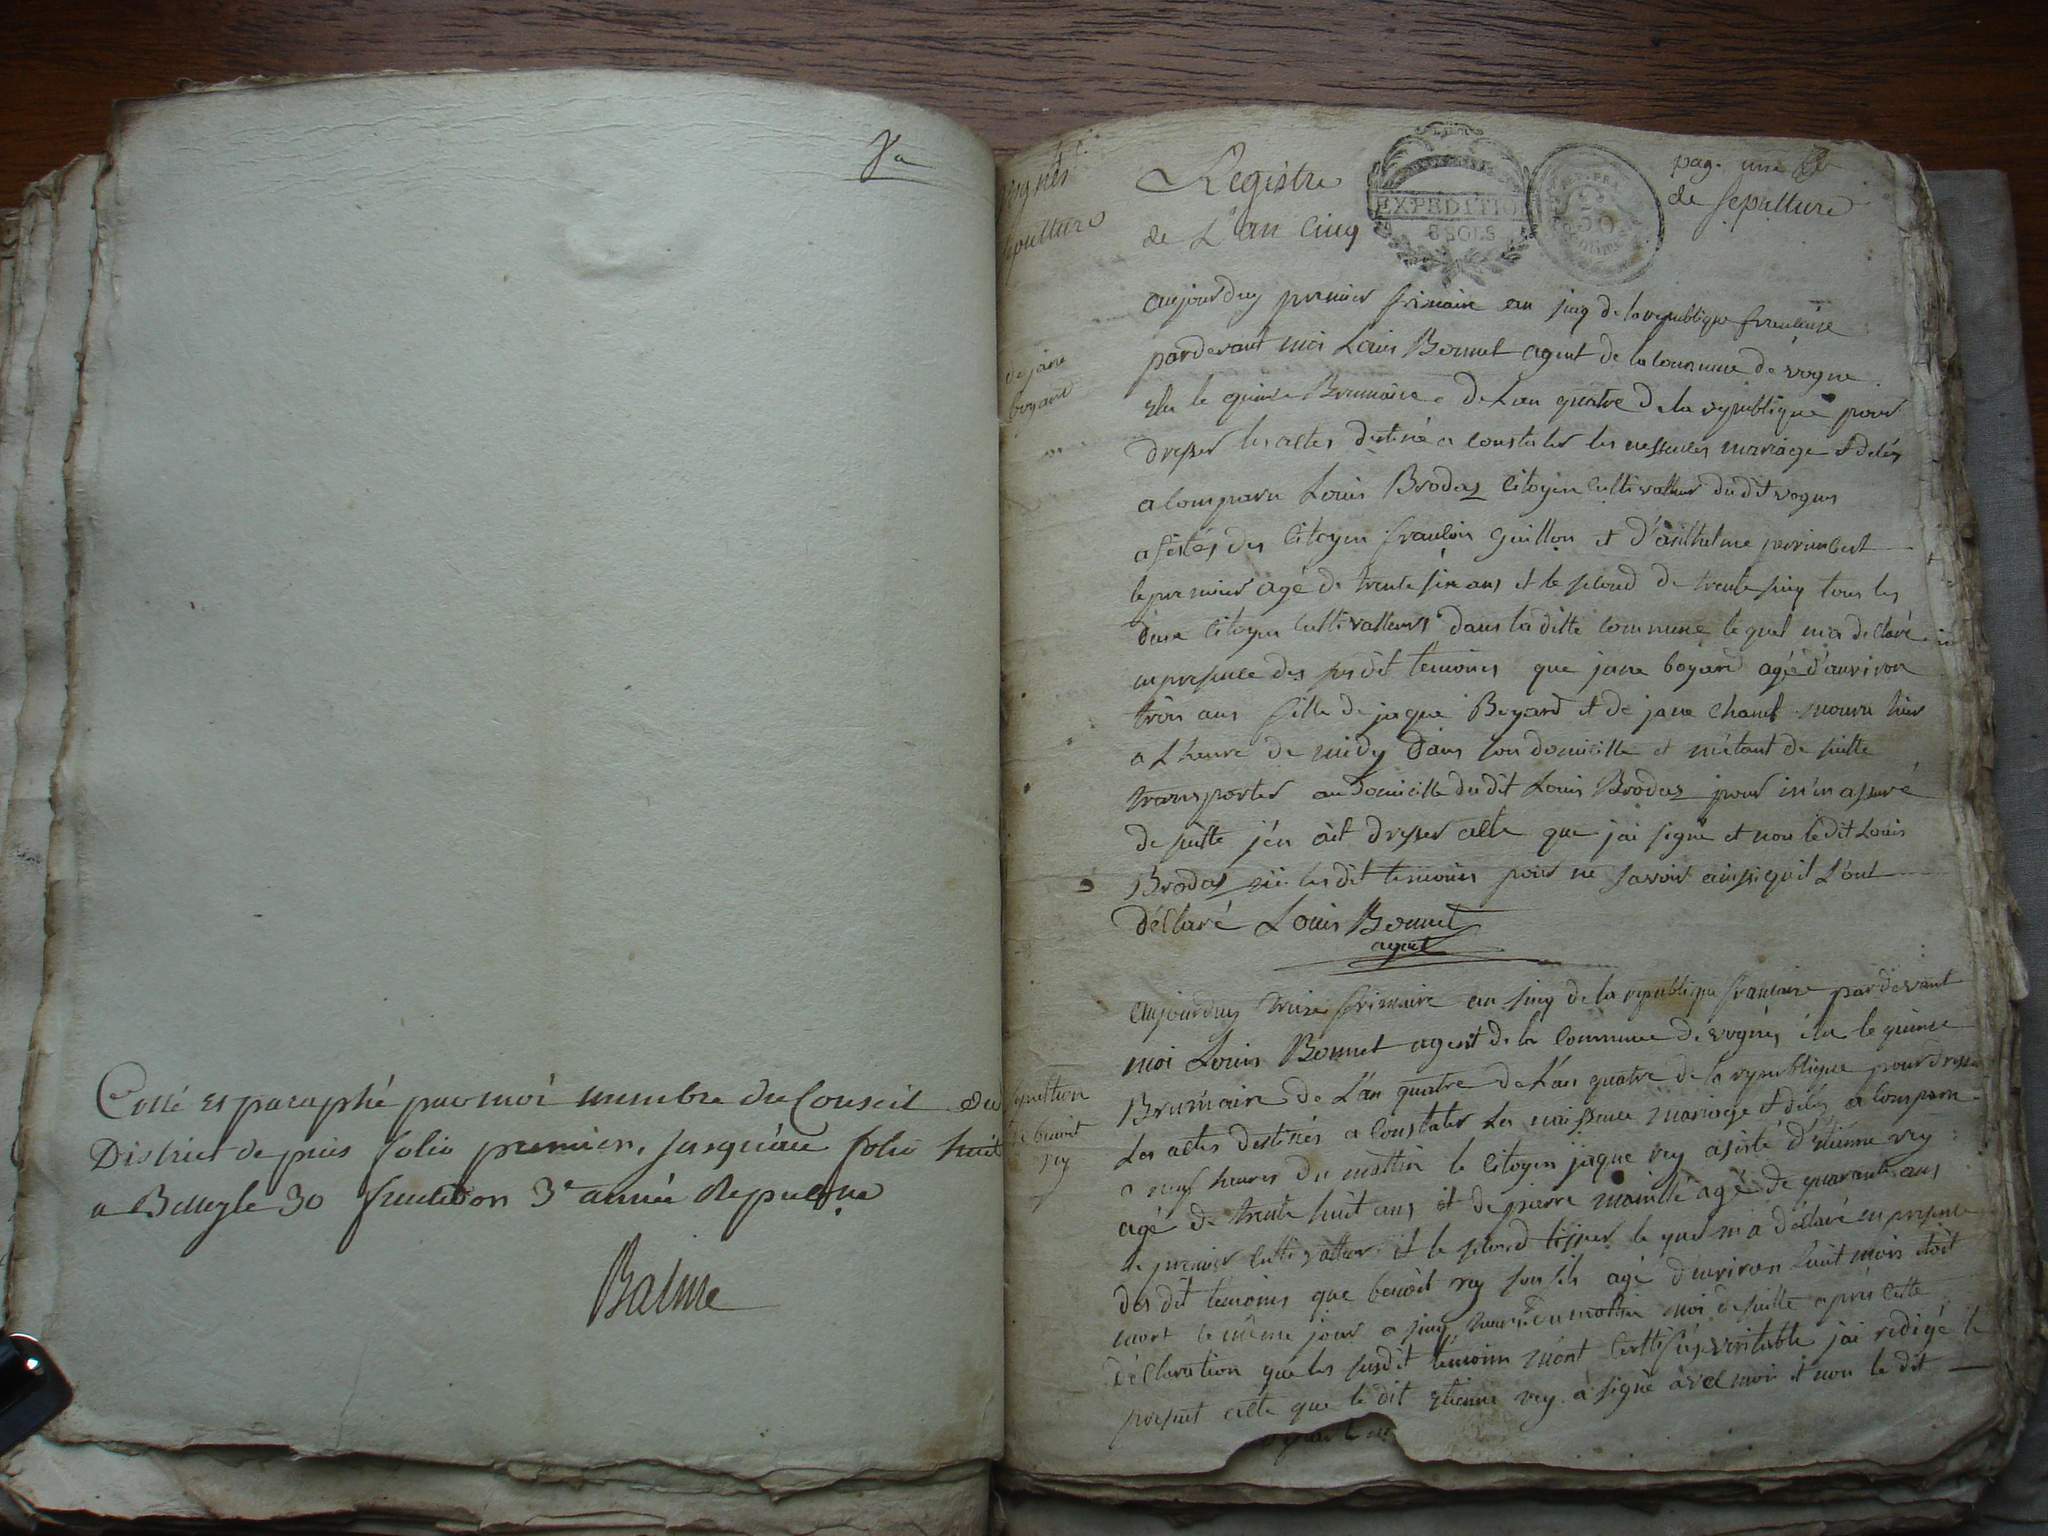 8e
Cotté et paraphé par moi membre du Conseil du
District depuis folio premier, jusqu'au folio huit
a Belley le 30 fructidor 3e année Republne
Balme
Vognes
sepulture
Registre
de L'an Cinq
EXPEDITION
8 SOLS
50
pag. une
de sepulture
de jane
boyard
aujourduy premier frimaire an sinq de la republique francaise
pardevant moi Louis Bonnet agent de la commune de vogne
elu le quinse Brumaire de L'an quatre de la republique pour
dresser les actes destiné a constater les nessences mariage et délés
a comparu Louis Brodaz Citoyen cultivatteur du dit vognes
asistes des Citoyen francois Guillon et d'anthelme perrimbert
le premier agé de trente six ans et le second de trente sinq tous les
deux Citoyen cultivatteurs dans la ditte commune lequel m'a déclaré
en presence des susdit temoins que jane boyard agé d'anviron
trois ans fille de jaque Boyard et de jane Chanel mouru hier
a L'heure de midy dans son domicille et m'étant de suitte
transporter au Domicille du dit Louis Brodaz pour m'en assuré
de suitte j'en ait dresser acte que j'ai signé et non le dit Louis
Brodaz ni les dit temoins pour ne savoir ainsi qu'il L'ont
déclaré Louis Bonnet
agent
sepultion
de benoit
rey
aujourduy treize frimaire an sinq de la republique francaise pardevant
moi Louis Bonnet agent de la commune de vognes élu le quinse
Brumaire de L'an quatre de L'an quatre de la republique pour dresser
Les actes destinés a constater les naissence mariage et délés a comparu
a neuf heures du mattin le Citoyen jaque rey asisté d'etienne rey
agé de trente huit ans et de pierre mainllé agé de quarante ans
le premier cultivatteur et le second tisser le quel m'a déclaré en presence
des dit temoins que benoit rey son fils agé d'anviron huit mois étoit
mort le même jour a sinq heures du mattin moi de suitte après cette
déclaration que les susdit temoins m'ont certtifiés veritable j'ai redigé le
present acte que le dit etienne rey a signé avec moi et non le dit